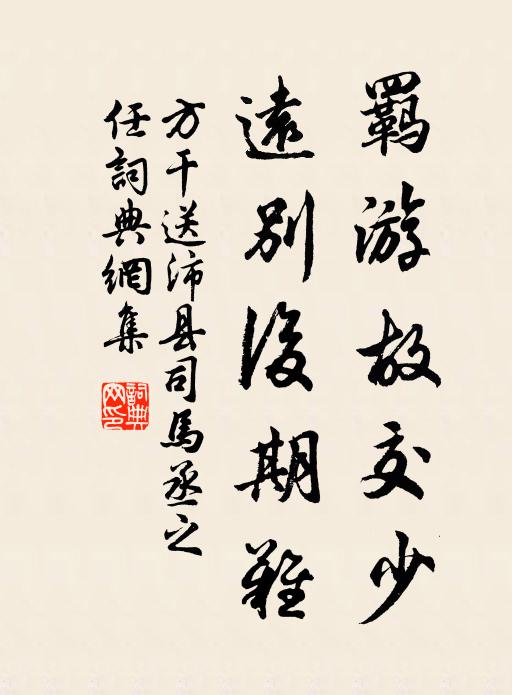 羈游故交少
遠別後期難
方干送沛县司馬丞之
任詞典網集
詞典
网印